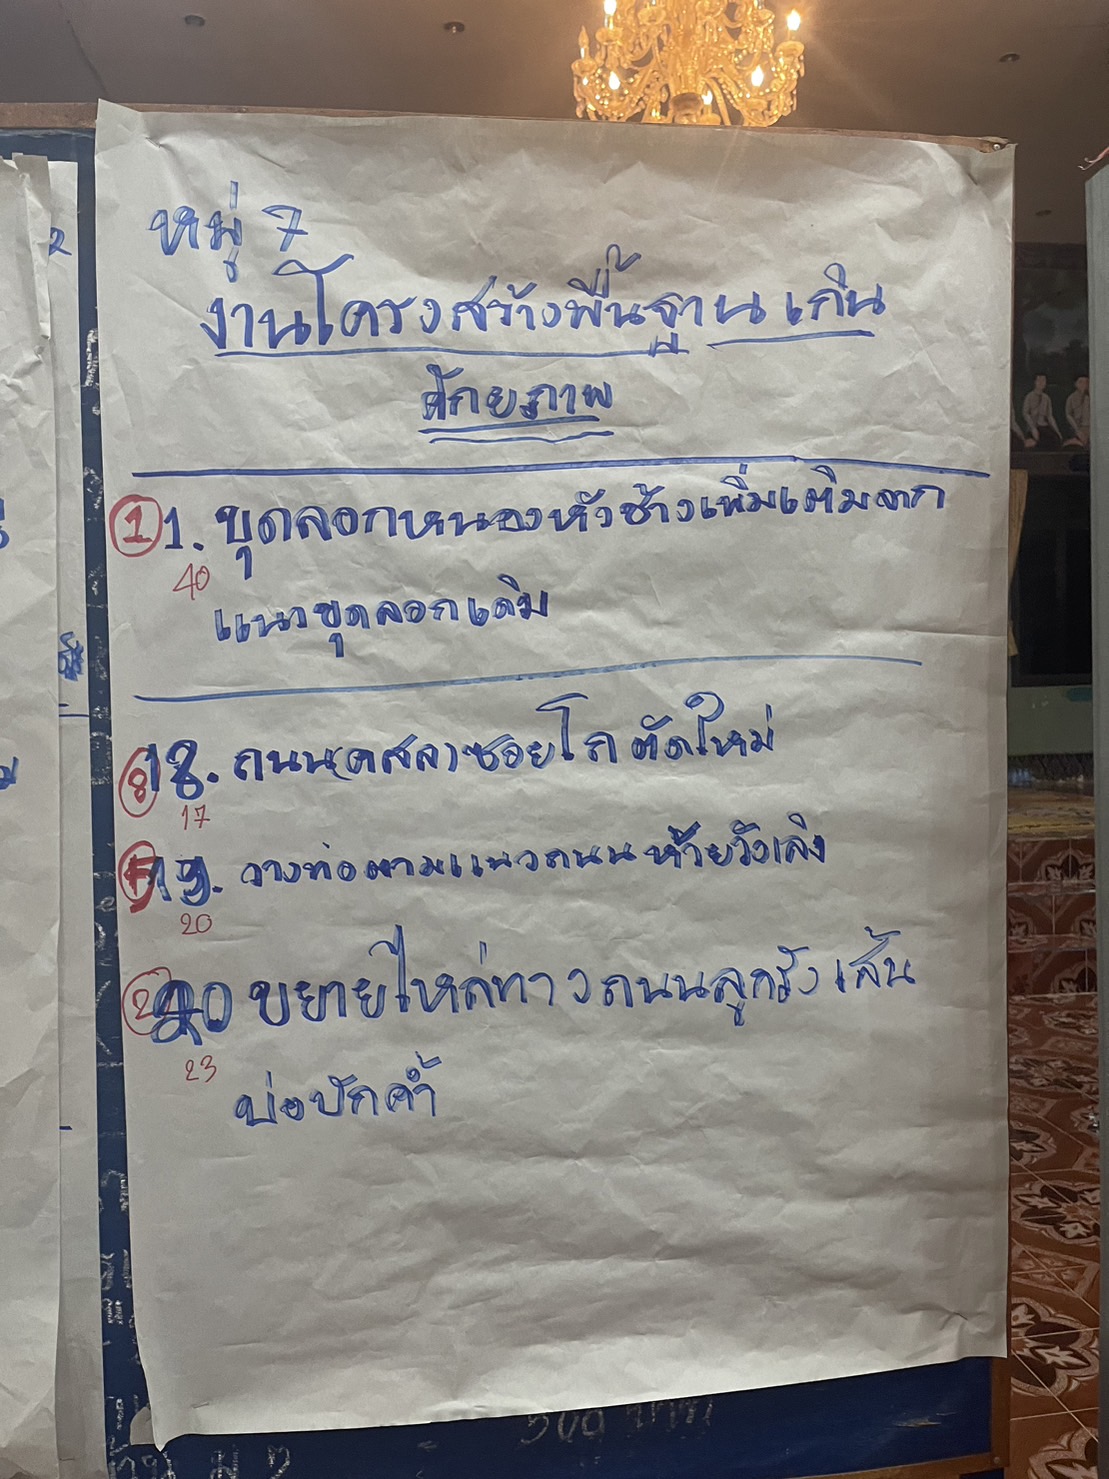 หมู่ 7
งานโครงสร้างพื้นฐาน เกิน
ศักยภาพ
① 1. ขุดลอกหนองหัวช้างเพิ่มเติมจาก
40
แนวขุดลอกเดิม
⑧ 18. ถนน(คสล)ซอยโก ตัดใหม่
17
19. วางท่อตามแนวถนน ห้วยวังเลิง
20
② 20 ขยายไหล่ทาง ถนนลูกรัง เส้น
23
บ่อปักคำ้